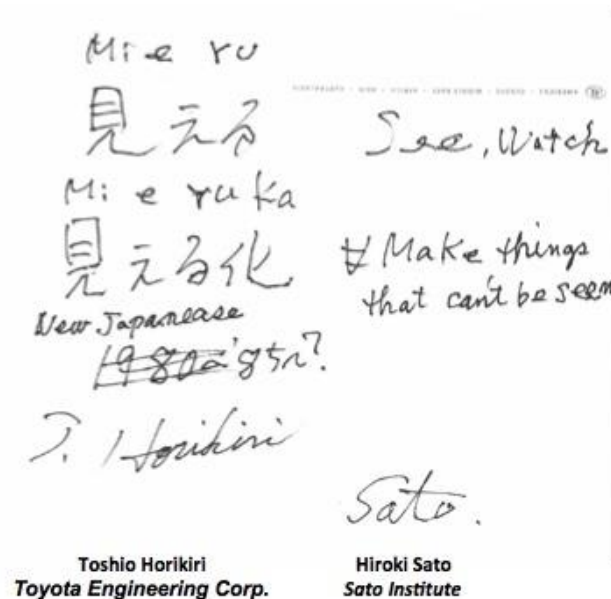 Mie ru
見える
See, Watch
Mi e ru ka
見える化
Make things
that can't be seen
New Japanease
T. Horikiri
Sato.
Toshio Horikiri
Hiroki Sato
Toyota Engineering Corp.
Sato Institute